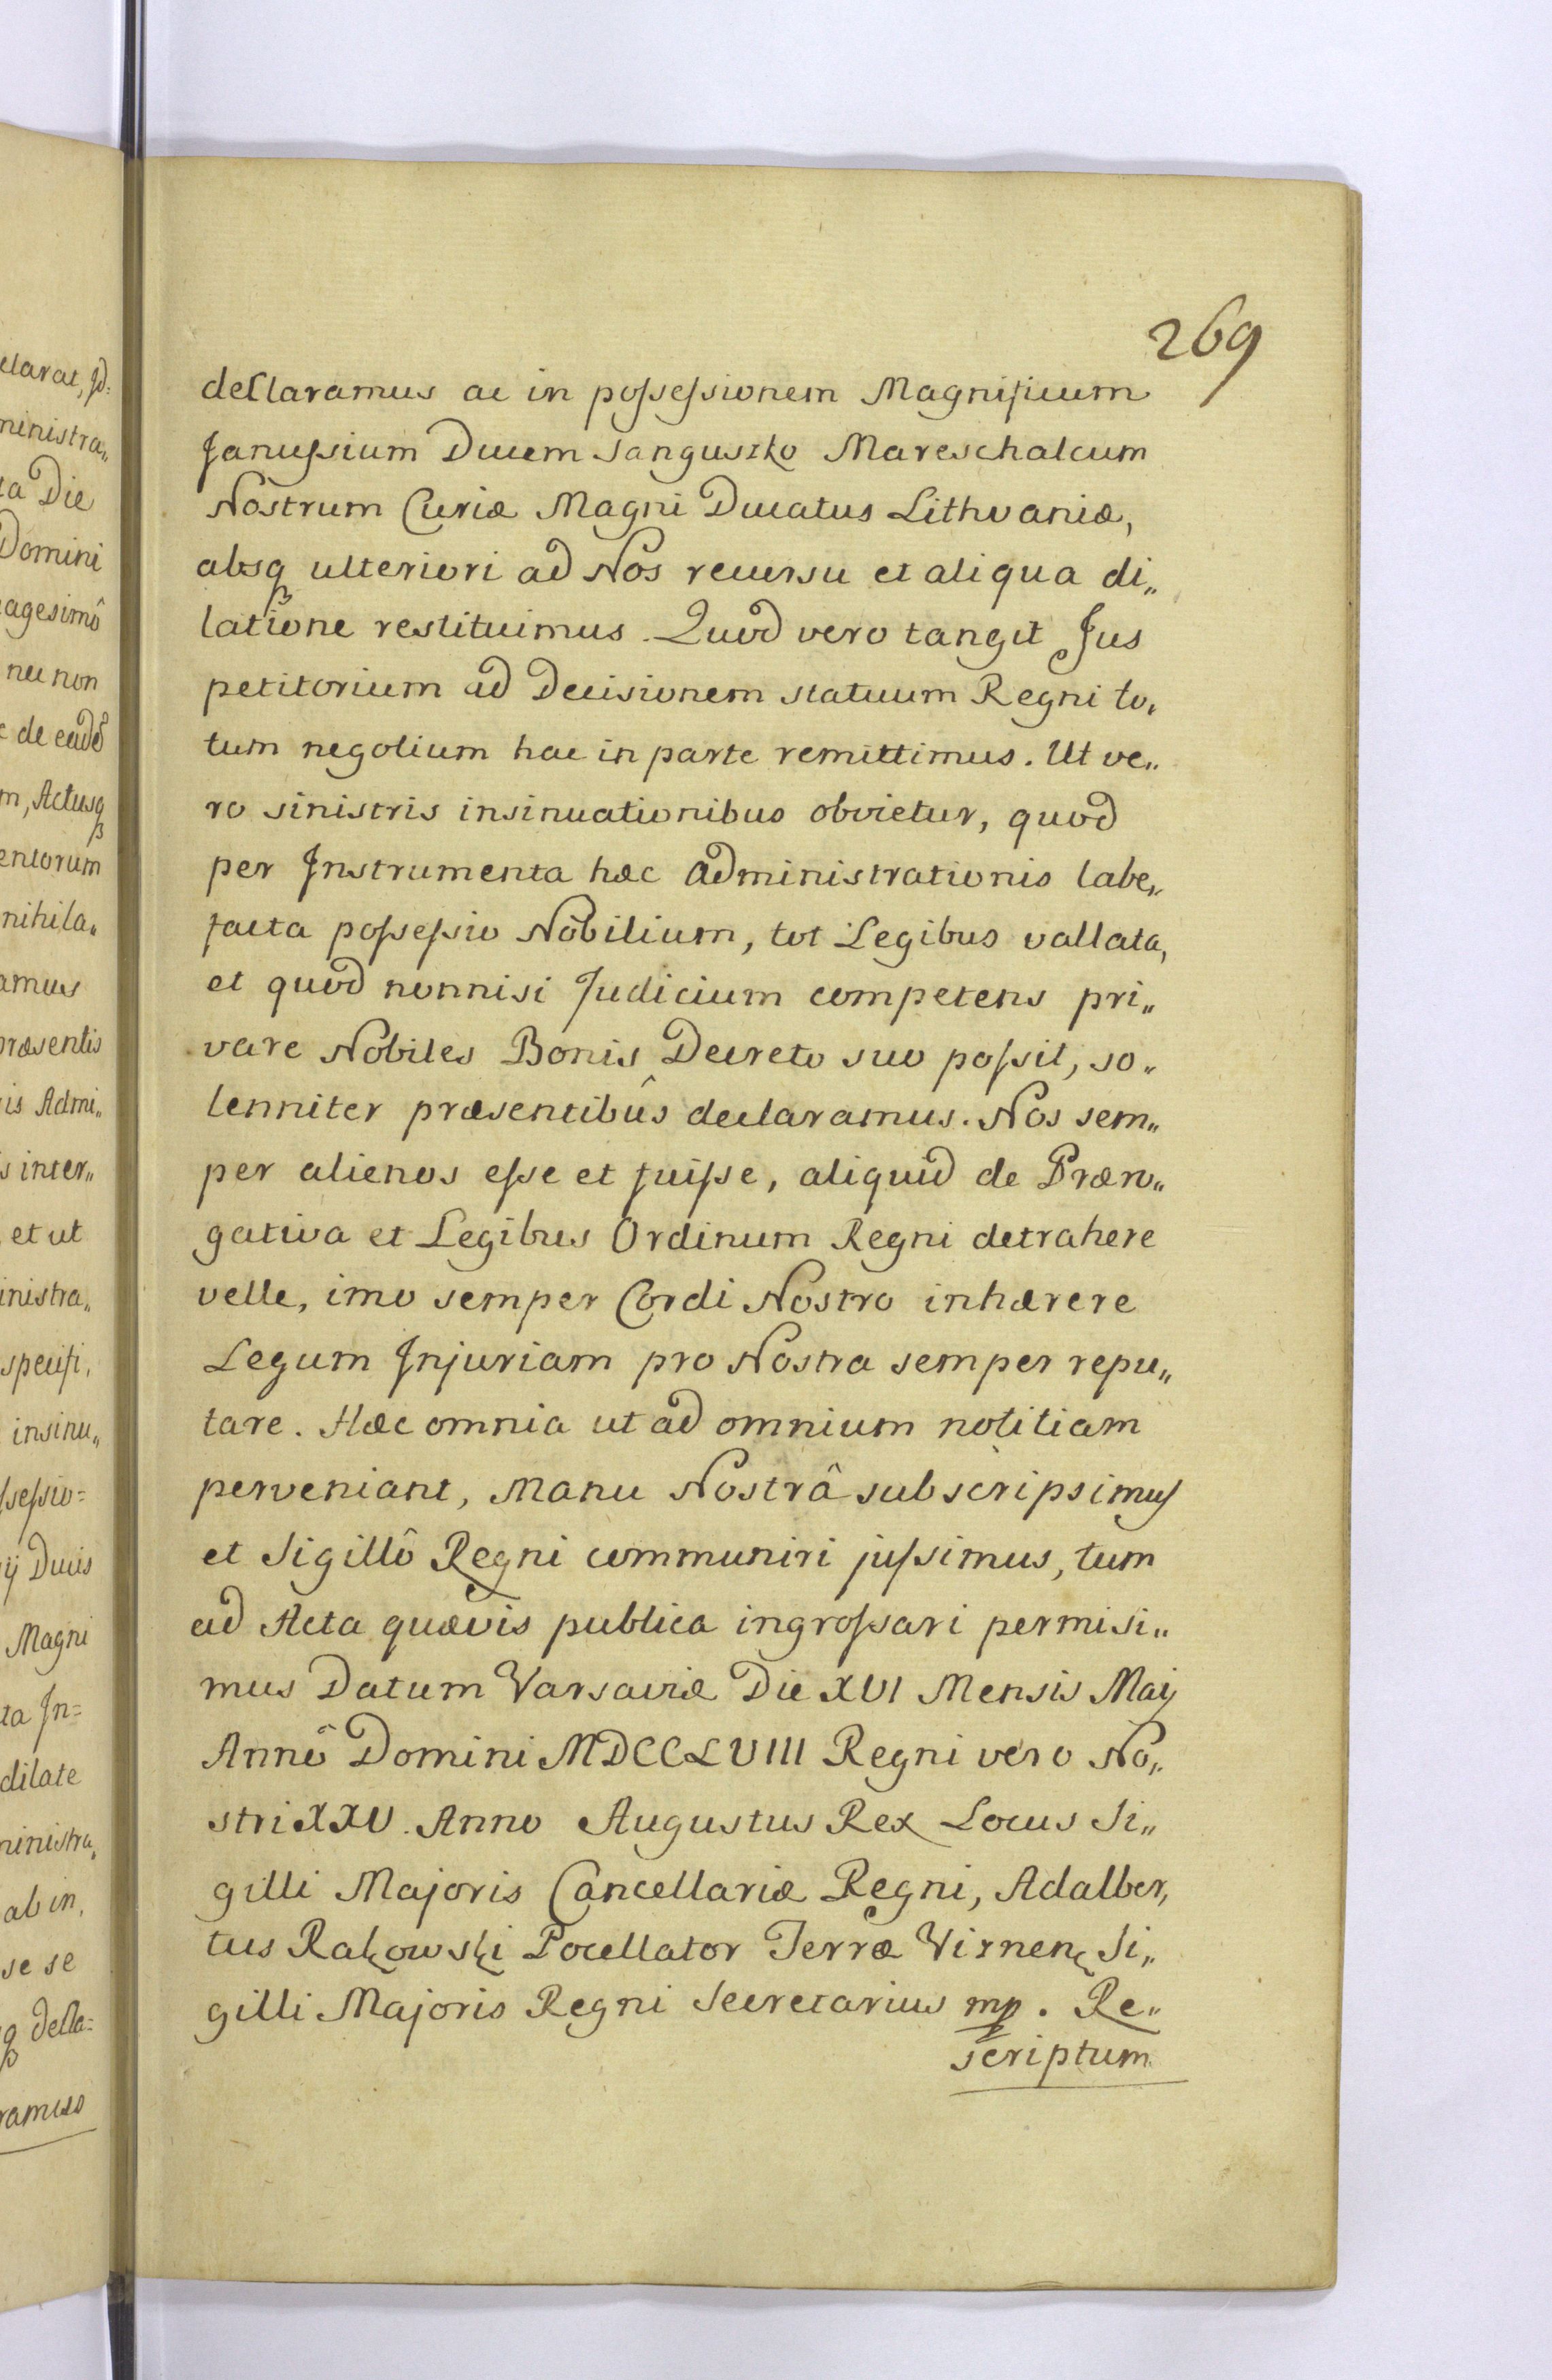 269
declaramus ac in possessionem Magnificum
Janussium Ducem Sanguszko Mareschalcum
Nostrum Curiæ Magni Ducatus Lithvaniæ,
absq ulteriori ad Nos recursu et aliqua di„
latione restituimus. Quod vero tangit Jus
petitorium ad Decisionem statuum Regni to„
tum negotium hac in parte remittimus. Ut ve„
ro sinistris insinuationibus obvietur, quod
per Instrumenta hæc administrationis labe„
facta possessio Nobilium, tot Legibus vallata,
et quod nonnisi Judicium competens pri„
vare Nobiles Bonis Decreto suo possit, so„
lenniter præsentibûs declaramus. Nos sem„
per alienos esse et fuisse, aliquid de Præro„
gativa et Legibus Ordinum Regni detrahere
velle, imo semper Cordi Nostro inhærere
Legum Injuriam pro Nostra semper repu„
tare. Hæc omnia ut ad omnium notitiam
perveniant, Manu Nostrâ subscripsimus
et Sigillô Regni communiri jussimus, tum
ad Acta quævis publica ingrossari permisi„
mus Datum Varsaviæ Die XVI Mensis Maij
Annô Domini MDCCLVIII Regni vero No„
stri XXV. Anno Augustus Rex Locus Si„
gilli Majoris Cancellariæ Regni, Adalber„
tus Rakowski Pocellator Terræ Viznen Si„
gilli Majoris Regni Secretarius mp. Re„
scriptum
clarat,
ministra„
ta Die
Domini
agesimô
nec non
de eadẽ
m, Actusq
entorum
nihila„
amus
præsentis
is Admi„
s inter„
et ut
inistra„
specifi„
insinu„
ssessio=
ij Ducis
Magni
ta In=
dilate
ministra„
ab in„
se se
q decla=
ramus